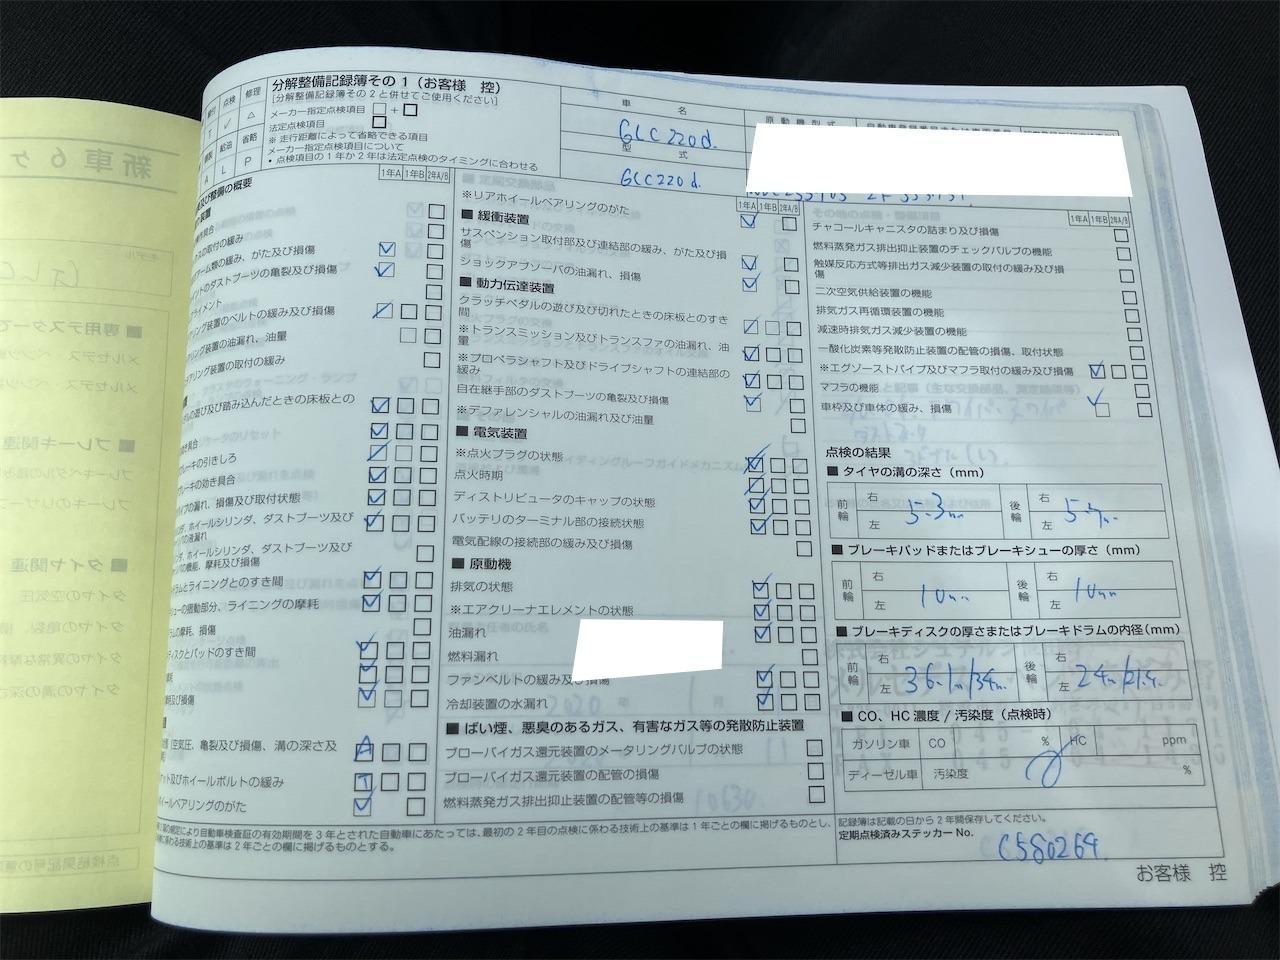 新車6ヶ
モデル
GLC
■ 専用テスターで
メルセデス・ベンツ
メルセデス・ベンツ
■ ブレーキ関連
ブレーキペダルの踏
ブレーキのリザーブ
■ タイヤ関連
タイヤの空気圧
タイヤの亀裂、損
タイヤの異常な摩耗
タイヤの溝の深さ
分解整備記録簿その1(お客様 控)
[分解整備記録簿その2と併せてご使用ください]
点検
修理
△
省略
給油
P
A
L
T
メーカー指定点検項目 □+□
法定点検項目 □
※ 走行距離によって省略できる項目
メーカー指定点検項目について
・点検項目の1年か2年は法定点検のタイミングに合わせる
車 名
GLC220d.
型 式
GLC220d.
原動機型式
及び整備の概要
1年A 1年B 2年A/B
の取付の緩み
ーム類の緩み、がた及び損傷
トのダストブーツの亀裂及び損傷
ライメント
リング装置のベルトの緩み及び損傷
リング装置の油漏れ、油量
アリング装置の取付の緩み
の遊び及び踏み込んだときの床板との
き具合
ブレーキの引きしろ
ブレーキの効き具合
イプの漏れ、損傷及び取付状態
ダ、ホイールシリンダ、ダストブーツ及び
の液漏れ
ンダ、ホイールシリンダ、ダストブーツ及び
の機能、摩耗及び損傷
ラムとライニングとのすき間
シューの摺動部分、ライニングの摩耗
ラムの摩耗、損傷
ディスクとパッドのすき間
摩耗
摩耗及び損傷
空気圧、亀裂及び損傷、溝の深さ及
A
ナット及びホイールボルトの緩み
T
ホイールベアリングのがた
※リアホイールベアリングのがた
1年A 1年B 2年A/B
■ 緩衝装置
サスペンション取付部及び連結部の緩み、がた及び損傷
ショックアブソーバの油漏れ、損傷
■ 動力伝達装置
クラッチペダルの遊び及び切れたときの床板とのすき間
※トランスミッション及びトランスファの油漏れ、油量
※プロペラシャフト及びドライブシャフトの連結部の緩み
自在継手部のダストブーツの亀裂及び損傷
※デファレンシャルの油漏れ及び油量
■ 電気装置
※点火プラグの状態
点火時期
ディストリビュータのキャップの状態
バッテリのターミナル部の接続状態
電気配線の接続部の緩み及び損傷
■ 原動機
排気の状態
※エアクリーナエレメントの状態
油漏れ
燃料漏れ
ファンベルトの緩み及び損傷
冷却装置の水漏れ
■ ばい煙、悪臭のあるガス、有害なガス等の発散防止装置
ブローバイガス還元装置のメータリングバルブの状態
ブローバイガス還元装置の配管の損傷
燃料蒸発ガス排出抑止装置の配管等の損傷
1年A 1年B 2年A/B
チャコールキャニスタの詰まり及び損傷
燃料蒸発ガス排出抑止装置のチェックバルブの機能
触媒反応方式等排出ガス減少装置の取付の緩み及び損傷
二次空気供給装置の機能
排気ガス再循環装置の機能
減速時排気ガス減少装置の機能
一酸化炭素等発散防止装置の配管の損傷、取付状態
※エグゾーストパイプ及びマフラ取付の緩み及び損傷
マフラの機能
車枠及び車体の緩み、損傷
点検の結果
■ タイヤの溝の深さ(mm)
前輪 右 左 5.3m
後輪 右 左 5.7m
■ ブレーキパッドまたはブレーキシューの厚さ(mm)
前輪 右 左 10m
後輪 右 左 10m
■ ブレーキディスクの厚さまたはブレーキドラムの内径(mm)
前輪 右 左 36.1m/34m.
後輪 右 左 24m/21.4.
■ CO、HC 濃度 / 汚染度(点検時)
ガソリン車 CO % HC ppm
ディーゼル車 汚染度 %
の規定により自動車検査証の有効期間を3年とされた自動車にあたっては、最初の2年目の点検に係わる技術上の基準は1年ごとの欄に掲げるものとし、
係わる技術上の基準は2年ごとの欄に掲げるものとする。
記録簿は記載の日から2年間保存してください。
定期点検済みステッカー No.
C580264.
お客様 控